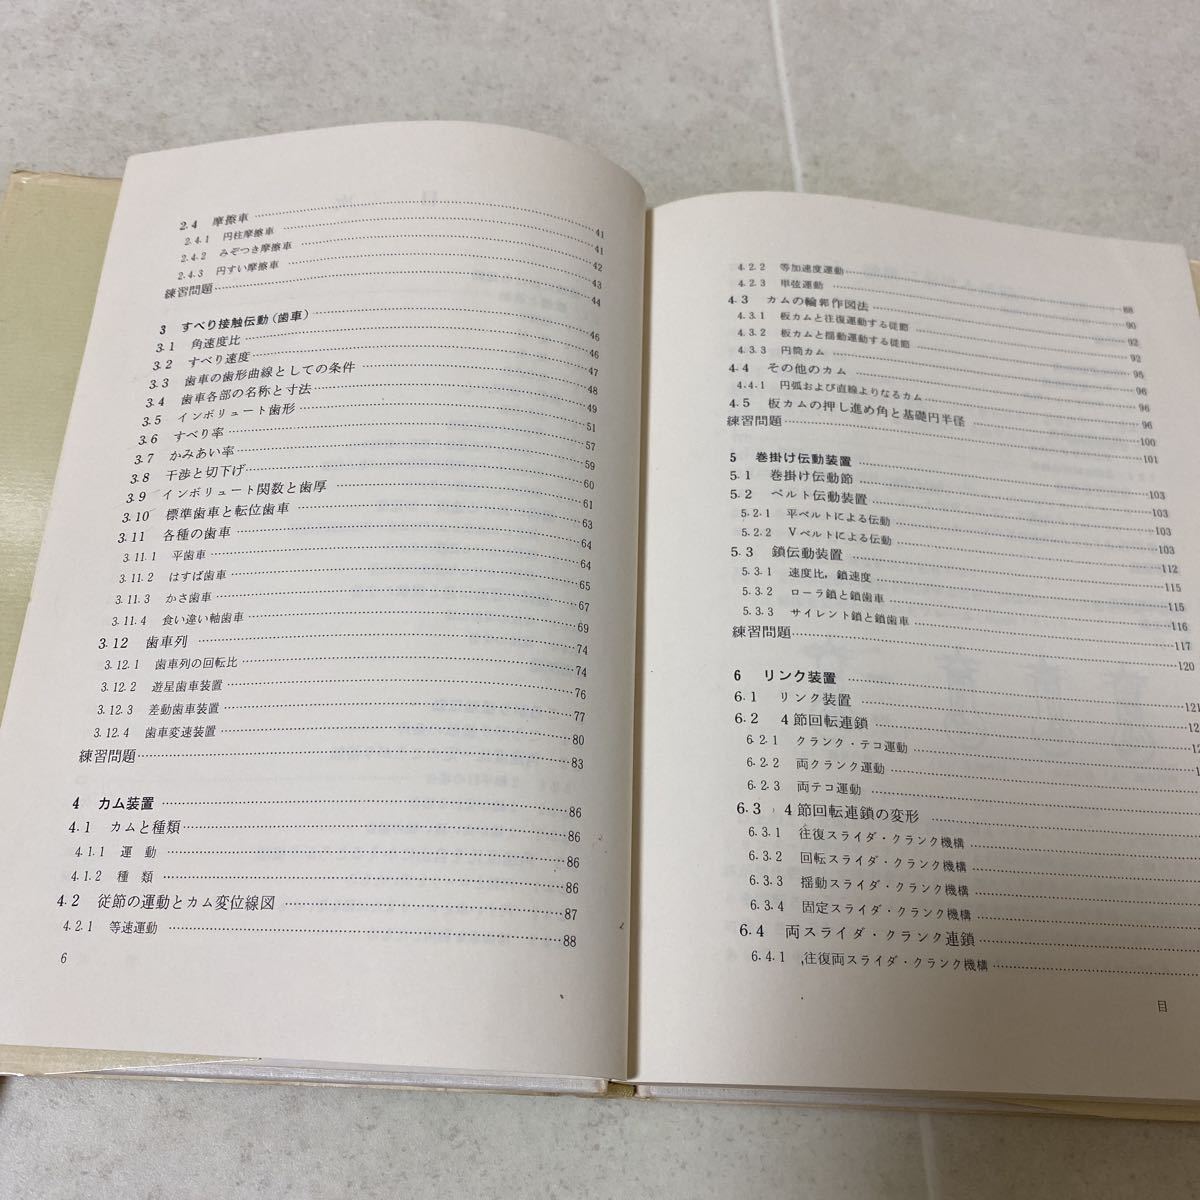 2.4 摩擦車 41
2.4.1 円柱摩擦車 41
2.4.2 みぞつき摩擦車 42
2.4.3 円すい摩擦車 43
練習問題 44
3 すべり接触伝動(歯車) 46
3.1 角速度比 46
3.2 すべり速度 47
3.3 歯車の歯形曲線としての条件 48
3.4 歯車各部の名称と寸法 49
3.5 インボリュート歯形 51
3.6 すべり率 57
3.7 かみあい率 59
3.8 干渉と切下げ 60
3.9 インボリュート関数と歯厚 61
3.10 標準歯車と転位歯車 63
3.11 各種の歯車 64
3.11.1 平歯車 64
3.11.2 はすば歯車 65
3.11.3 かさ歯車 67
3.11.4 食い違い軸歯車 69
3.12 歯車列 74
3.12.1 歯車列の回転比 74
3.12.2 遊星歯車装置 76
3.12.3 差動歯車装置 77
3.12.4 歯車変速装置 80
練習問題 83
4 カム装置 86
4.1 カムと種類 86
4.1.1 運動 86
4.1.2 種類 86
4.2 従節の運動とカム変位線図 87
4.2.1 等速運動 88
6
4.2.2 等加速度運動 88
4.2.3 単弦運動 90
4.3 カムの輪郭作図法 92
4.3.1 板カムと往復運動する従節 92
4.3.2 板カムと揺動運動する従節 95
4.3.3 円筒カム 96
4.4 その他のカム 96
4.4.1 円弧および直線よりなるカム 96
4.5 板カムの押し進め角と基礎円半径 100
練習問題 101
5 巻掛け伝動装置 103
5.1 巻掛け伝動節 103
5.2 ベルト伝動装置 103
5.2.1 平ベルトによる伝動 103
5.2.2 Vベルトによる伝動 112
5.3 鎖伝動装置 115
5.3.1 速度比，鎖速度 115
5.3.2 ローラ鎖と鎖歯車 116
5.3.3 サイレント鎖と鎖歯車 117
練習問題 120
6 リンク装置 121
6.1 リンク装置
6.2 4節回転連鎖
6.2.1 クランク・テコ運動
6.2.2 両クランク運動
6.2.3 両テコ運動
6.3 4節回転連鎖の変形
6.3.1 往復スライダ・クランク機構
6.3.2 回転スライダ・クランク機構
6.3.3 揺動スライダ・クランク機構
6.3.4 固定スライダ・クランク機構
6.4 両スライダ・クランク連鎖
6.4.1 往復両スライダ・クランク機構
目